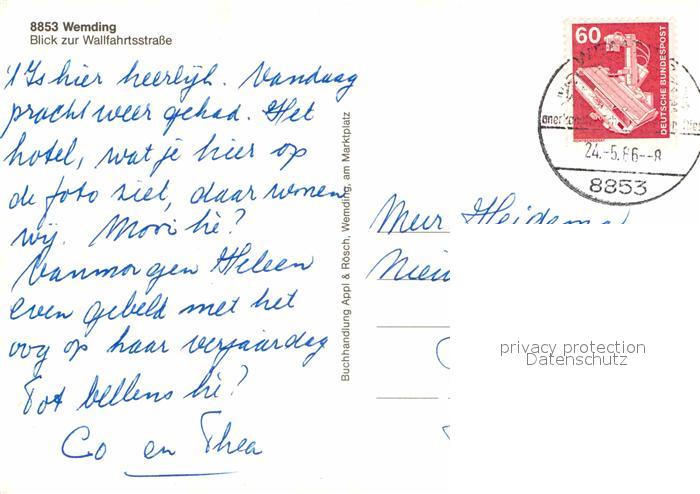 8853 Wemding
Blick zur Wallfahrtsstraße
't Is hier heerlijk. Vandaag
prachtweer gehad. Het
hotel, wat je hier op
de foto ziet, daar wonen
wij. Mooi hè?
Vanmorgen Heleen
even gebeld met het
oog op haar verjaardag
Tot bellens hè?
Co en Thea
Buchhandlung Appl & Rösch, Wemding, am Marktplatz
60
DEUTSCHE BUNDESPOST
24.-5.86--8
8853
Meur Heidema
Nieu
privacy protection
Datenschutz